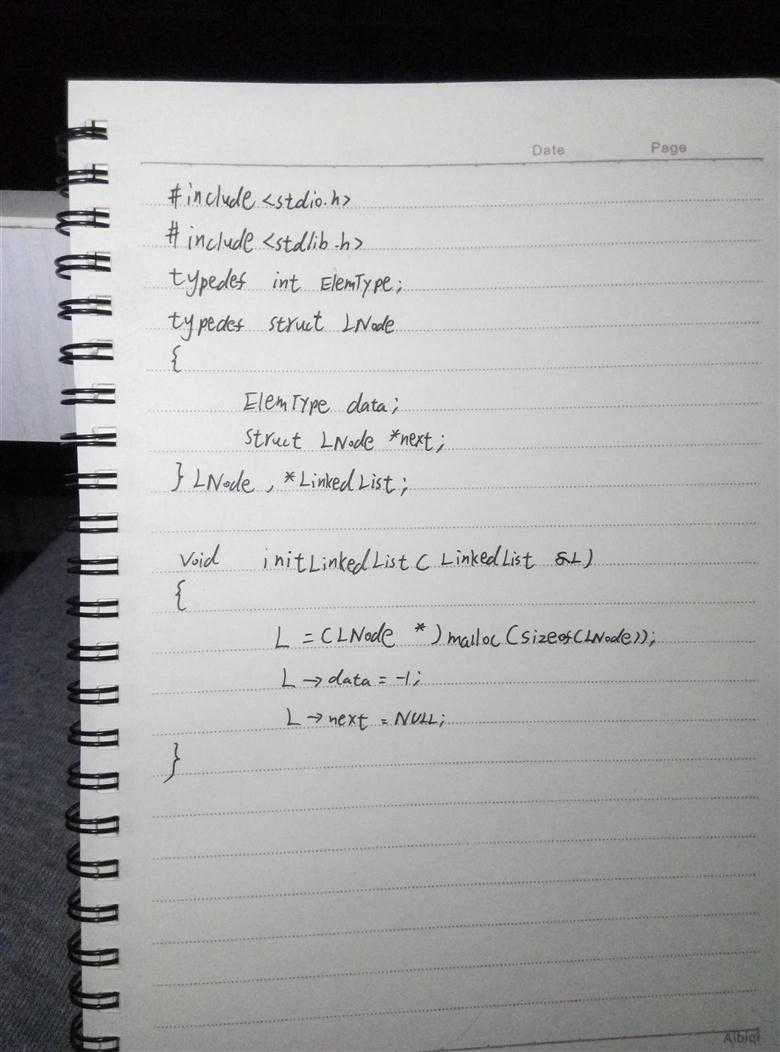 Date Page
#include <stdio.h>
#include <stdlib.h>
typedef int ElemType;
typedef struct LNode
{
ElemType data;
struct LNode *next;
} LNode, *LinkedList;
void initLinkedList( LinkedList &L)
{
L = (LNode *) malloc(sizeof(LNode));
L → data = -1;
L → next = NULL;
}
Aibiqi